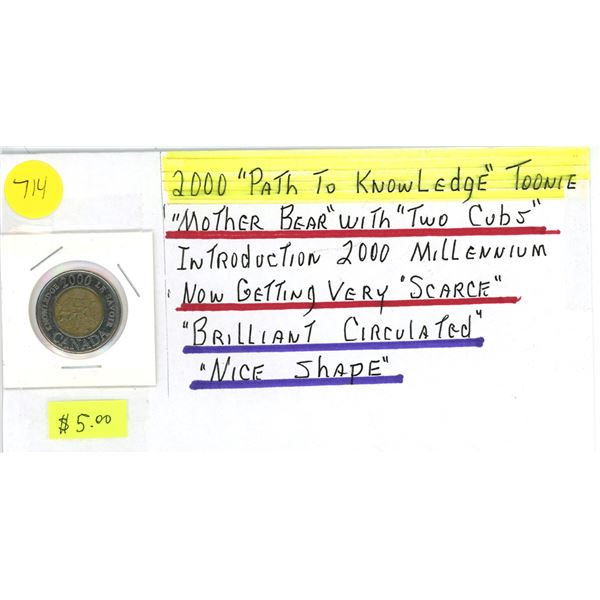 714
2000 "PATH TO KNOWLEDGE" TOONIE
"MOTHER BEAR" WITH "TWO CUBS"
INTRODUCTION 2000 MILLENNIUM
NOW GETTING VERY "SCARCE"
"BRILLIANT CIRCULATED"
"NICE SHAPE"
KNOWLEDGE 2000 LE SAVOIR
CANADA
$5.00